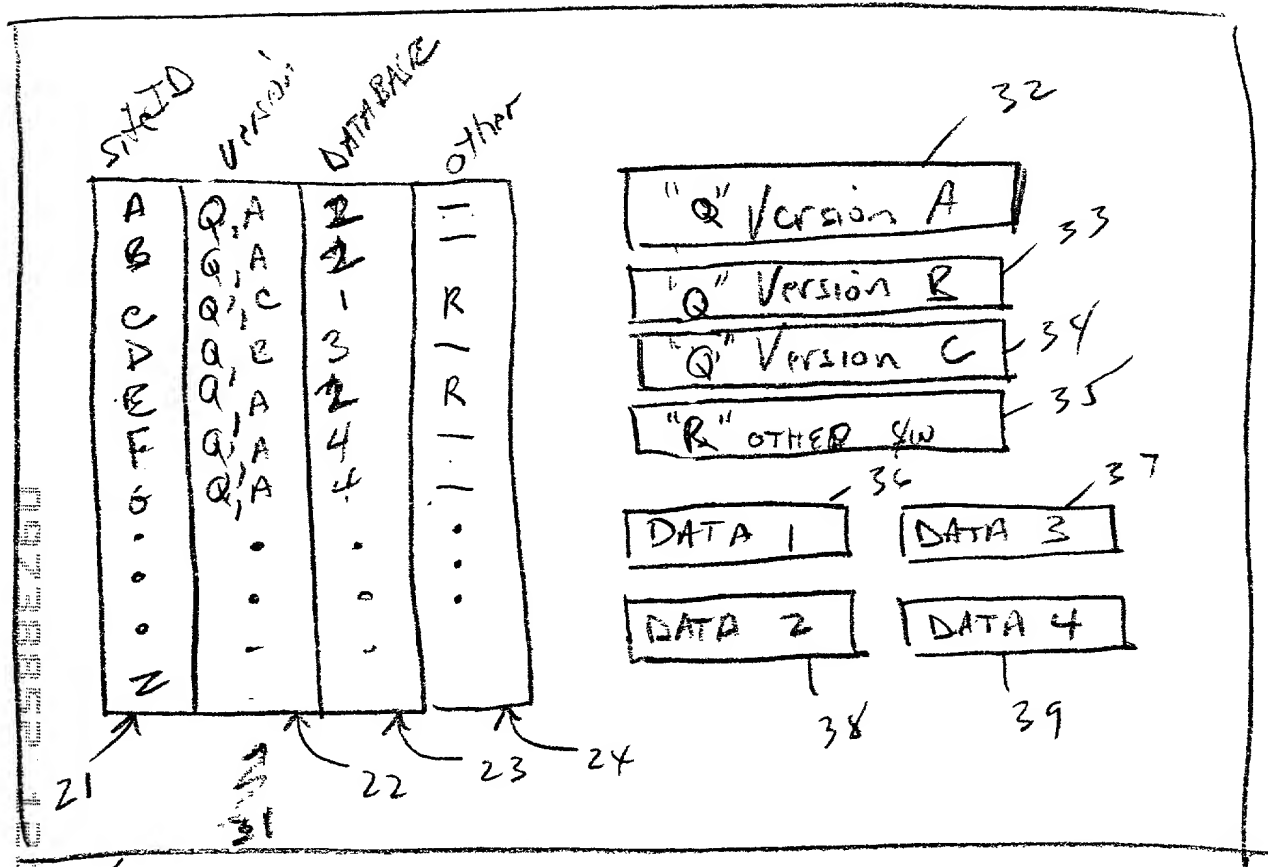 SiteID Version DATABASE other
A Q,A 2 —
B Q,A 2 —
C Q,C 1 R
D Q, 3 —
E Q,A 2 R
F Q,A 4 —
G Q,A 4 —
Z
21
22
23
24
31
32
"Q" Version A
33
"Q" Version B
34
"Q" Version C
35
"R" OTHER S/W
36
DATA 1
37
DATA 3
DATA 2
38
DATA 4
39